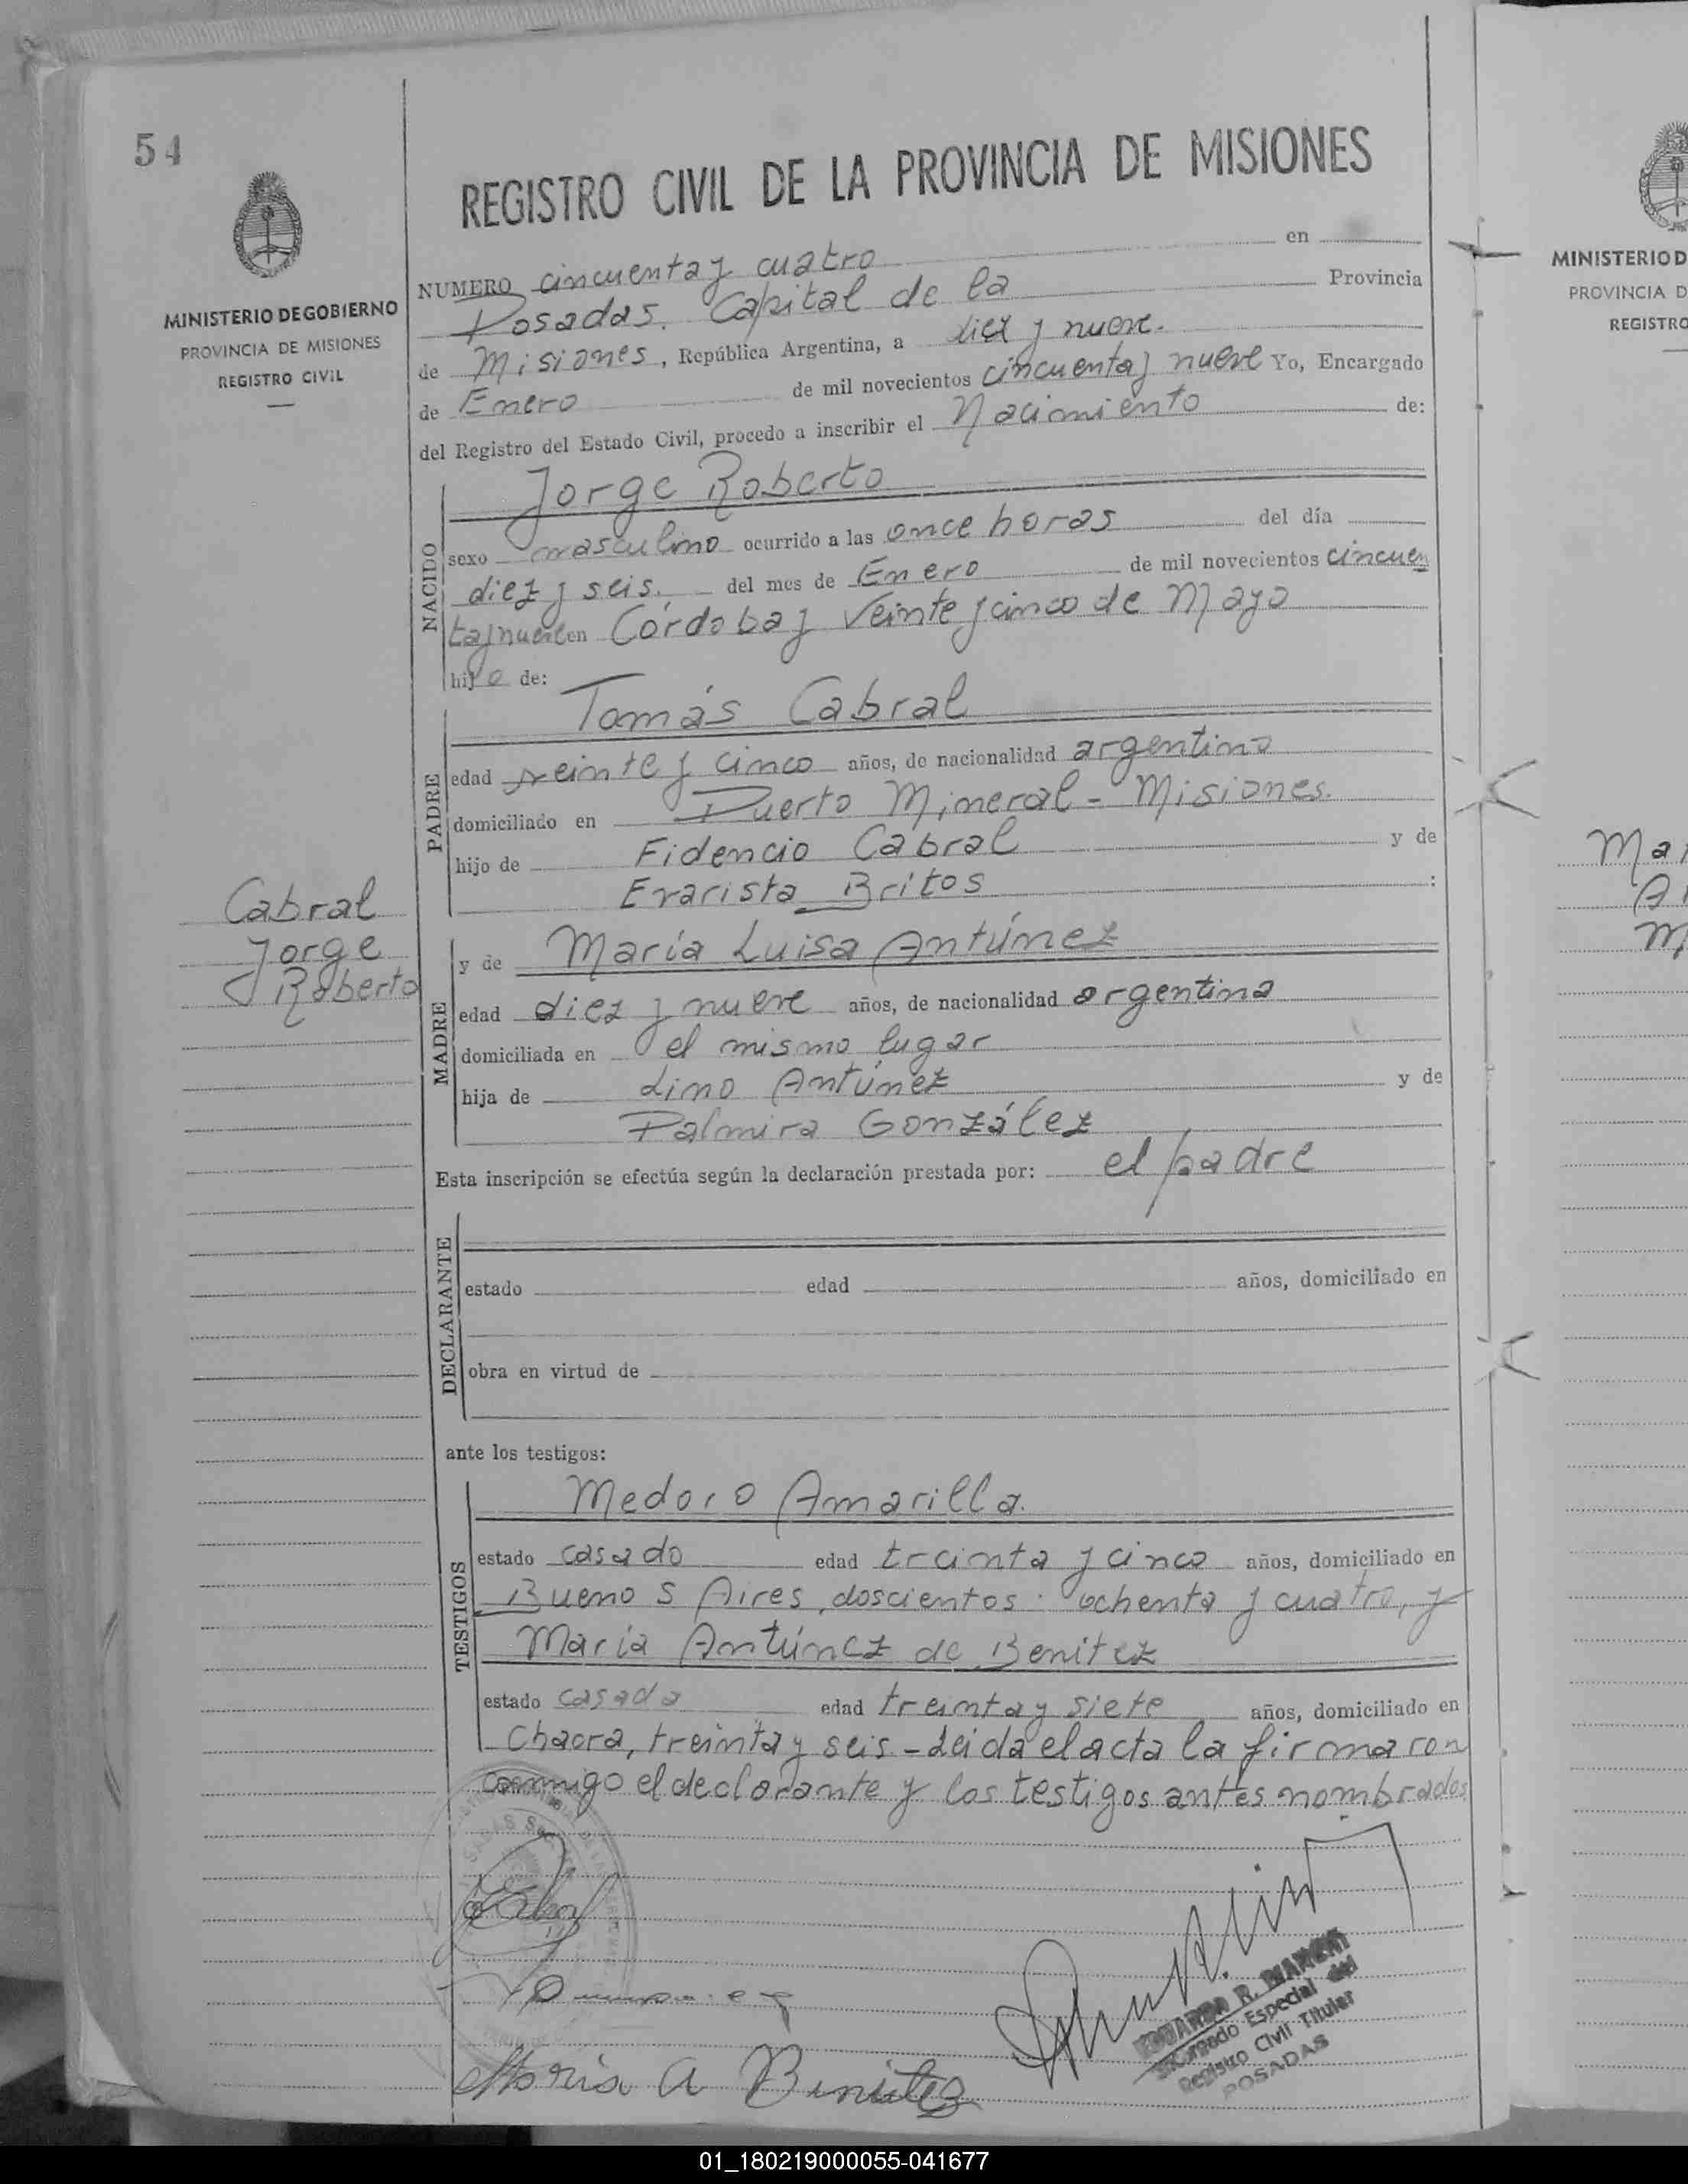 54
REGISTRO CIVIL DE LA PROVINCIA DE MISIONES
MINISTERIO DE GOBIERNO
PROVINCIA DE MISIONES
REGISTRO CIVIL
NUMERO cincuenta y cuatro en
Posadas. Capital de la Provincia
de Misiones, República Argentina, a diez y nueve.
de Enero de mil novecientos cincuenta y nueve Yo, Encargado
del Registro del Estado Civil, procedo a inscribir el Nacimiento de:
NACIDO
Jorge Roberto
sexo masculino ocurrido a las once horas del día
diez y seis. del mes de Enero de mil novecientos cincuen
ta y nueve en Córdoba y Veinte y cinco de Mayo
hijo de:
PADRE
Tomás Cabral
edad veinte y cinco años, de nacionalidad argentino
domiciliado en Puerto Mineral - Misiones.
hijo de Fidencio Cabral y de
Evarista Britos :
Cabral
Jorge
Roberto
MADRE
y de María Luisa Antúnez
edad diez y nueve años, de nacionalidad argentina
domiciliada en el mismo lugar
hija de Lino Antúnez y de
Palmira González
Esta inscripción se efectúa según la declaración prestada por: el padre
DECLARANTE
estado edad años, domiciliado en
obra en virtud de
ante los testigos:
TESTIGOS
Medoro Amarilla.
estado casado edad treinta y cinco años, domiciliado en
Buenos Aires, doscientos ochenta y cuatro, y
María Antúnez de Benitez
estado casada edad treinta y siete años, domiciliado en
Chacra, treinta y seis - Leida el acta la firmaron
conmigo el declarante y los testigos antes nombrados
Maria A Benitez
EDUARDO R.
Encargado Especial del
Registro Civil Titular
POSADAS
MINISTERIO D
PROVINCIA D
REGISTRO
01_180219000055-041677